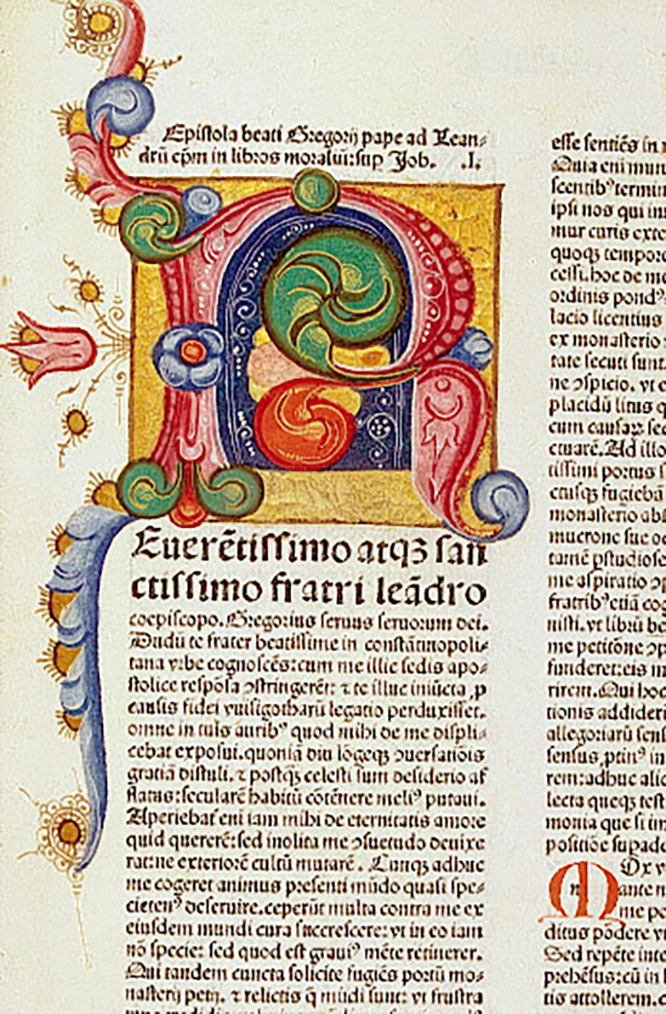 Epistola beati Gregorij pape ad Lean-
drū ep̄m in libros moraliū: sup Job. .I.
R
Euerētissimo atqꝫ san
ctissimo fratri leādro
coepiscopo. Gregorius seruus seruorum dei.
Dudū te frater beatissime in constātinopoli-
tana vrbe cognoscēs: cum me illic sedis apo-
stolice respōsa ꝯstringerēt: ⁊ te illuc iniūcta ꝓ
causis fidei vuisigotharū legatio perduxisset.
omne in tuis aurib⁹ quod mihi de me displi-
cebat exposui. quoniā diu lōgeqꝫ ꝯuersatiōis
gratiā distuli. ⁊ postqꝫ celesti sum desiderio af
flatus: seculare habitū cōtēnere meli⁹ putaui.
Aperiebat eni iam mihi de eternitatis amore
quid quererē: sed inolita me ꝯsuetudo deuixe
rat: ne exteriorē cultū mutarē. Cunqꝫ adhuc
me cogeret animus presenti mūdo quasi spe-
cieten⁹ deseruire. ceperūt multa contra me ex
eiusdem mundi cura succrescere: vt in eo iam
nō specie: sed quod est graui⁹ mēte retinerer.
Qui tandem cuncta solicite fugiēs portū mo-
nasterij petij. ⁊ relictis q̄ mūdi sunt: vt frustra
esse sentiēs in
Quia eni mun
scentib⁹ termin
ipsi nos qui in
mur curis exte
quoqꝫ tempore
celsi. hoc de mo
ordinis pond⁹
lacio licentius
ex monasterio
tate secuti sunt
ne ꝯspicio. vt e
placidū litus q
cum causaꝝ sec
ctuarē. Ad illo
tissimi portus
ctusqꝫ fugiebā
monasterio abs
mucrone sue oc
tamē ꝑstudiose
me aspiratio ꝓ
fratrib⁹ etiā co
nisti. vt librū be
me petitōne ꝯp
funderet: eis in
rirem. Qui hoc
tionis addideri
allegoriarū sens
sensus ꝓtin⁹ in
rem: adhuc alic
lecta queqꝫ test
monia que si in
positiōe supade
MOx v
ante n
me po
ditus pōdere v
Sed repēte inte
prehēsus: cū in
tis attollerem. c